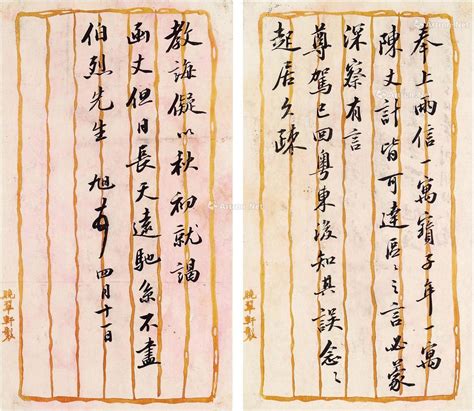 奉上兩信一寓寶子年一寓
陳丈計皆可達區〻之言必蒙
深察有言
尊駕已回粵東後知其誤念〻
起居久疎
教誨儗以秋初就謁
函丈但日長天遠馳系不盡
伯烈先生 旭 四月十一日
晚翠軒製
晚翠軒製